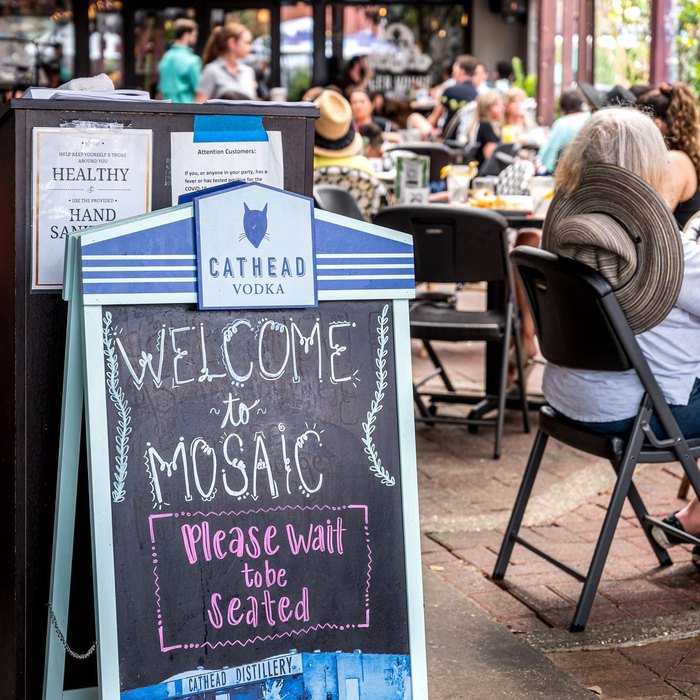 HELP KEEP YOURSELF & THOSE
AROUND YOU
HEALTHY
&
USE THE PROVIDED
HAND
Attention Customers:
If you, or anyone in your party, has a
fever or has tested positive for the
CATHEAD
VODKA
WELCOME
to
MOSAIC
Please Wait
to be
Seated
CATHEAD DISTILLERY